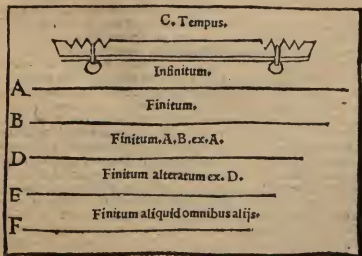 C. Tempus.
Infinitum.
A
Finitum.
B
Finitum. A. B. ex. A.
D
Finitum alteratum ex. D.
E
Finitum aliquid omnibus alijs.
F